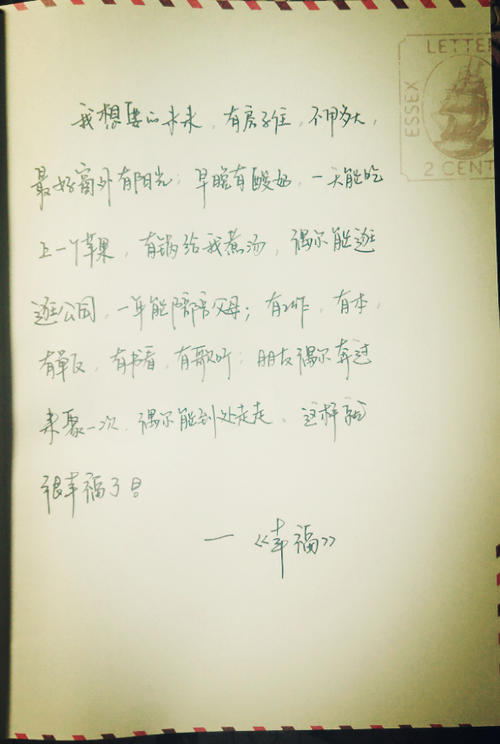 LETTER
ESSEX
2 CENT
我想要的未来，有房子住，不用多大，
最好窗外有阳光；早晚有酸奶，一天能吃
上一个苹果，有锅给我煮汤，偶尔能逛
逛公园，一年能陪陪父母；有工作，有本，
有单反，有书看，有歌听；朋友偶尔奔过
来聚一次，偶尔能到处走走，这样就
很幸福了！
—《幸福》